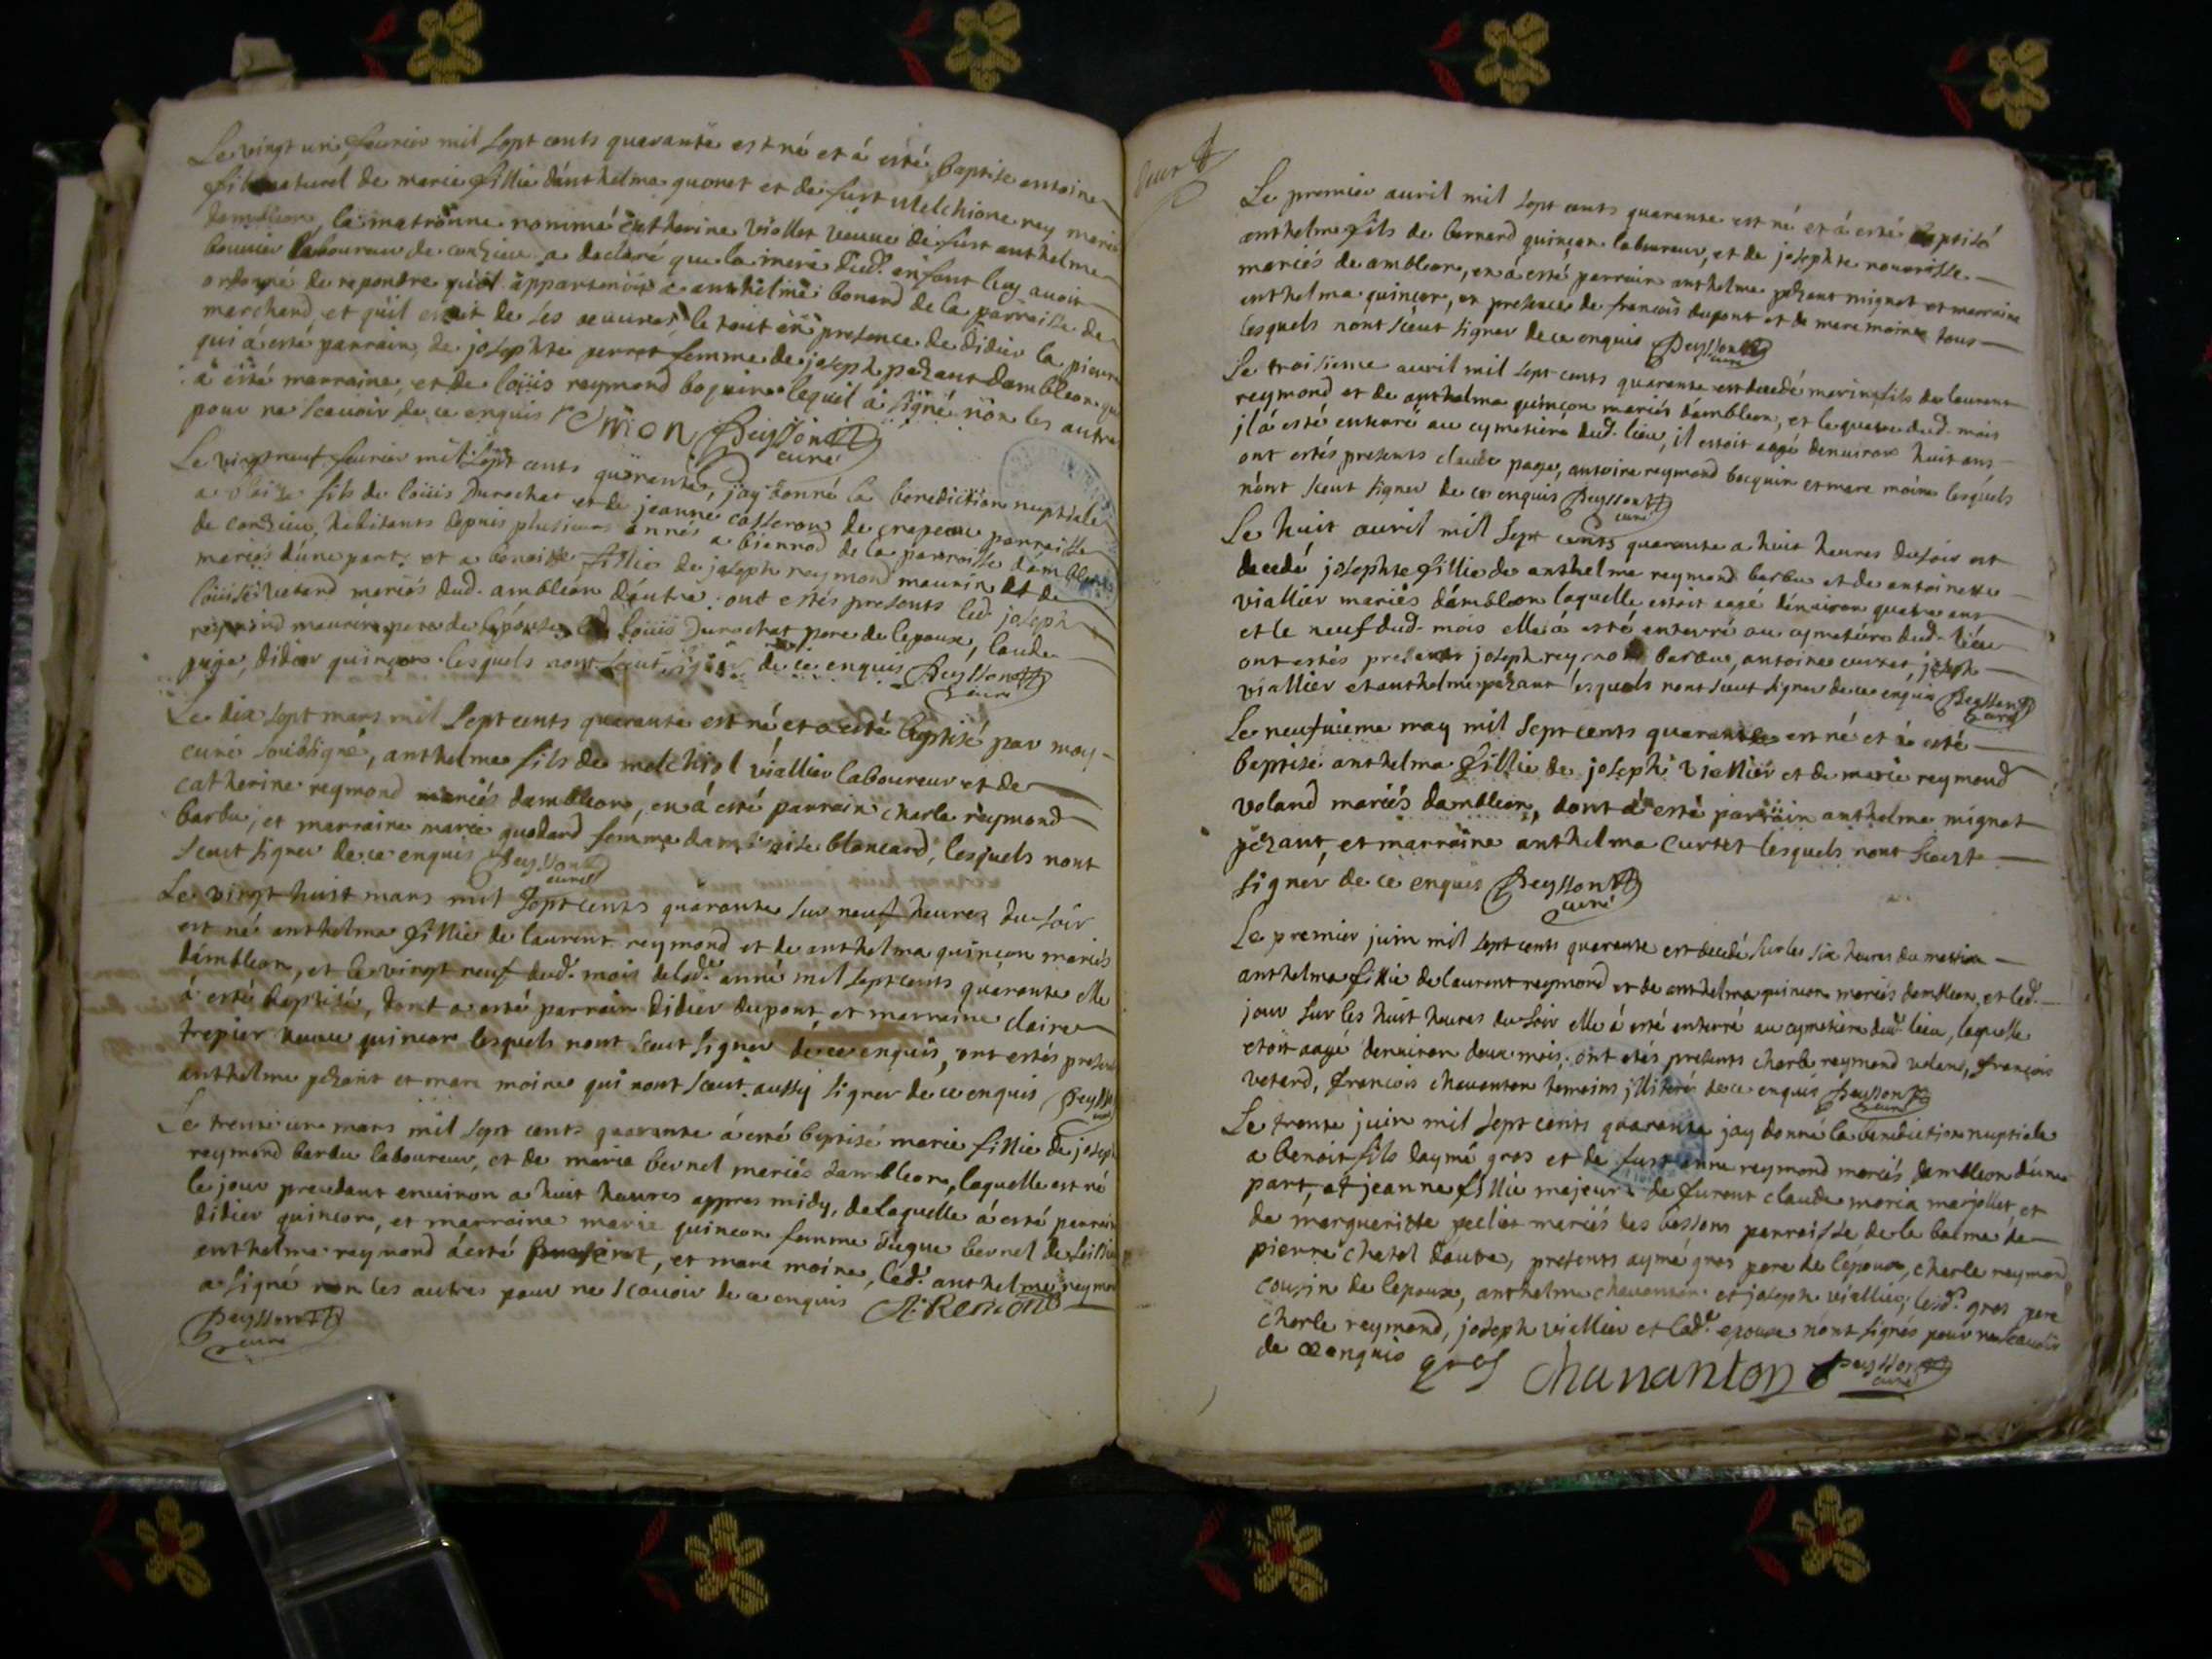 Le vingt un feurier mil sept cents quarante est né et á esté baptise antoine
fils naturel de marie fillie dánthelma quonet et de fust Melchione rey marié
dambleon, la matronne nommé catherine viollet veuue de fust anthelme
bouuier laboureur de conzieu a declaré que la mere dud. enfant luy auoit
ordonné de repondre quil appartenoit a anthelme bonard de la parroisse de
marchand et quil estoit de ses oeuures, le tout en presence de didier la pierre
qui á esté parrain, de josephte perret femme de joseph pezant dambleon qui
a esté marraine, et de loüis reymond boquin lequel á signé non les autre
pour ne scauoir de ce enquis Peysson
curé
Le vingt neuf feurier mil sept cents quarante, jay donné la benediction nuptiale
a blaise fils de loüis Durochat et de jeanne casseron de crapeou parroisse
de conzieu, habitants depuis plusieurs annés a biennod de la parroisse dambleon
mariés dúne part, et a benoitte fillie de joseph reymond maurin et de
loüise vetard mariés dud. ambléon dáutre. ont estés presents led. joseph
reymond maurin pere de lépouse, led. loüis Durochat pere de lepoux, laude
page, didier quinçon lesquels nont sceut signer de ce enquis Peysson
curé
Le dix sept mars mil sept cents quarante est né et a esté baptisé par moy
curé soubsigné, anthelme fils de melchiol viallier laboureur et de
catherine reymond mariés dambleon, en á esté parrain charle reymond
barbu, et marraine marie guodard femme dambroise blancard, lesquels nont
sceut signer de ce enquis Peysson
curé
Le vingt huit mars mil sept cents quarante sur neuf heures du soir
est né anthelma fillie de laurent reymond et de anthelma quinçon mariés
dámbleon, et le vingt neuf dud. mois delad. anné mil sept cents quarante elle
á esté baptisé, dont a esté parrain didier dupont et marraine claire
trepier quinçon lesquels nont sceut signer de ce enquis, ont estés presents
anthelme pezant et marc moine qui nont sceut aussy signer de ce enquis Peysson
curé
Le trente un mars mil sept cents quarante á esté baptisé marie fillie de joseph
reymond barbu laboureur, et de marie bernel mariés dambleon, laquelle est né
le jour precedant enuiron a huit heures appres midy, de laquelle á esté parrain
didier quinçon, et marraine marie quinçon femme bernel de
anthelme reymond á esté present, et marc moine, led. anthelme reymond
a signé non les autres pour ne scauoir de ce enquis A: Remond
Peysson
curé
Le premier auril mil sept cents quarante est né et á esté baptisé
anthelme fils de bernard quinçon laboureur, et de josephte nouarisse
mariés de ambleon, en á esté parrain anthelme pezant mignet et marraine
anthelma quinçon, en presence de françois dupont et de marc moine tous
lesquels nont sceut signer de ce enquis Peysson
curé
Le troisieme auril mil sept cents quarante est decedé marin fils de laurent
reymond et de anthelma quinçon mariés dámbleon, et le quatre dud. mois
jl á esté enterré au cymetiere dud. lieu, il estoit aagé denuiron huit ans
ont estés presents claude page, antoine reymond bocquin et marc moine lesquels
nónt sceut signer de ce enquis Peysson
curé
Le huit auril mil sept cents quarante a huit heures du soir est
decedé josephte fillie de anthelme reymond barbu et de antoinette
viallier mariés dámbleon laquelle estoit aagé dénuiron quatre ans
et le neuf dud. mois elle á esté enterré au cymetiére dud. lieu
ont estés presents joseph reymond barbu, antoine curtet, joseph
viallier et anthelme pezant lesquels nont sceut signer de ce enquis Peysson
curé
Le neufuieme may mil sept cents quarante est né et á esté
baptisé anthelma fillie de joseph viallier et de marie reymond
voland mariés dambleon, dont á esté parrain anthelme mignet
pezant, et marraine anthelma curtet lesquels nont sceut
signer de ce enquis Peysson
curé
Le premier juin mil sept cents quarante est decedé sur les six heures du mattin
anthelma fillie de laurent reymond et de anthelma quinçon mariés dambleon, et led.
jour sur les huit heures du soir elle á esté enterré au cymetiere dud. lieu, laquelle
etoit aagé denuiron deux mois, ont etés presents charle reymond voland, françois
vetard, françois chauanton temoins jlliteré de ce enquis Peysson
curé
Le trente juin mil sept cents quarante jay donné la benediction nuptiale
a benoit fils daymé gros et de fust anne reymond mariés dambleon dúne
part, et jeanne fillie majeure de furent claude maria marjollet et
de margueritte peclet mariés des bessons parroisse de la balme de
pierre chatel dáutre, presents aymé gros pere de lépoux, charle reymond
cousin de lepoux, anthelme chauanton et joseph viallier, lesd. gros pere
charle reymond, joseph viallier et lad. epouse nont signés pour ne scauoir
de ce enquis gros chananton Peysson
curé